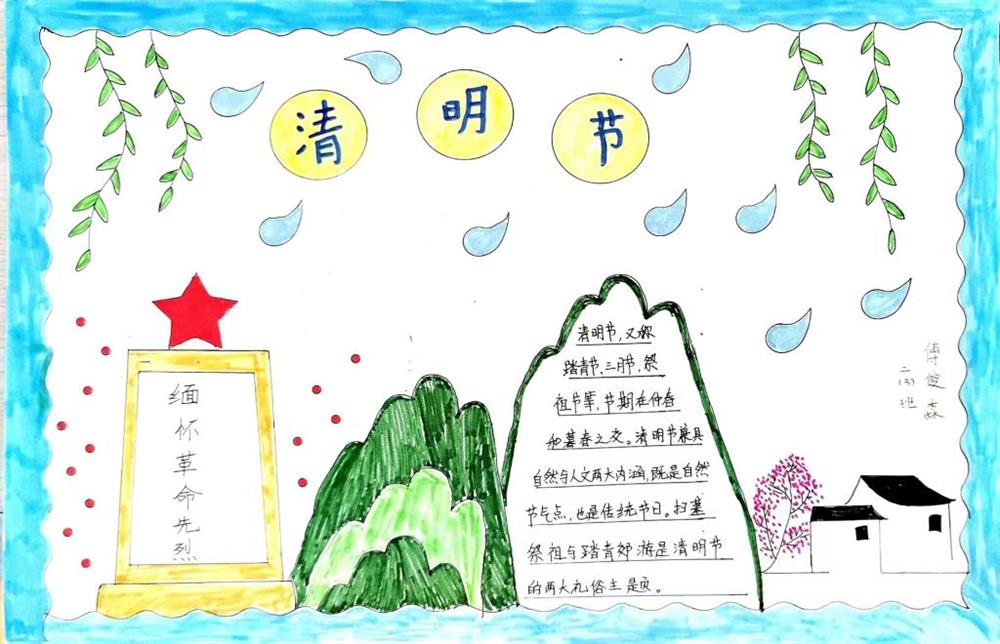 清明节
缅怀革命先烈
清明节，又称
踏青节、三月节，祭
祖节等，节期在仲春
和暮春之交。清明节兼具
自然与人文两大内涵，既是自然
节气点，也是传统节日。扫墓
祭祖与踏青郊游是清明节
的两大礼俗主题。
傅俊森
二(3)班